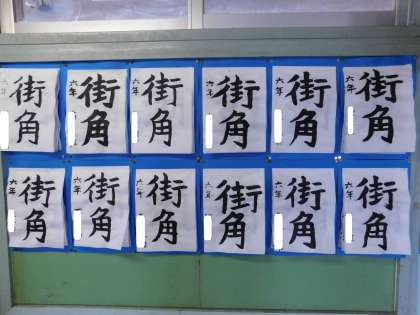 街角
六年
街角
六年
街角
六年
街角
六年
街角
六年
街角
六年
街角
六年
街角
六年
街角
六年
街角
六年
街角
六年
街角
六年